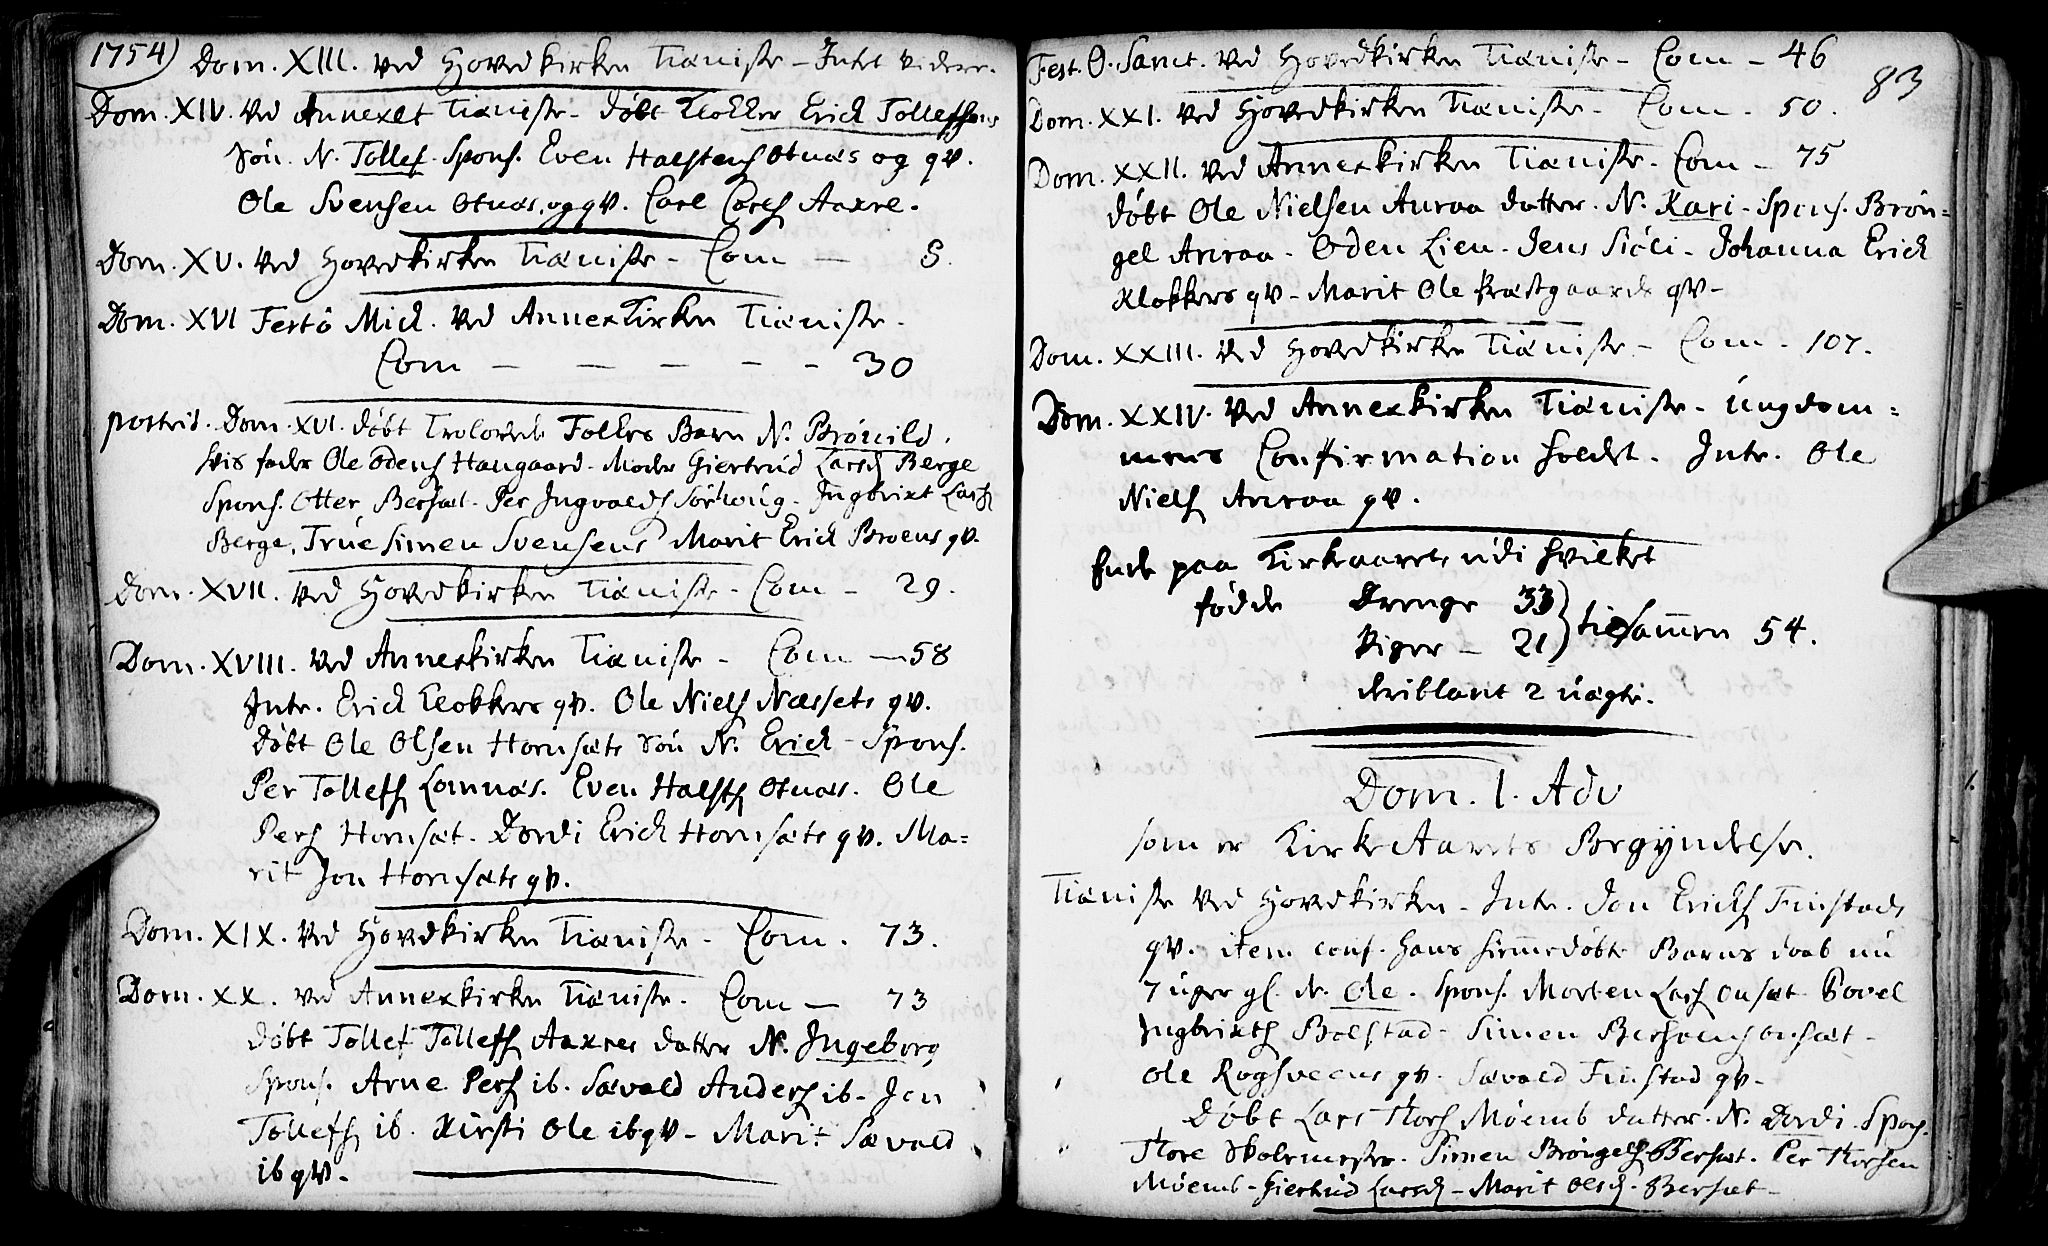 1754)
Dom. XIII. ved Hovedkirken Tieniste – Intet videre.
Dom. XIV. ved Annexet Tieniste – døbt Klokker Erich Tollefsens
Søn. N. Tollef. Spons. Even Halstens Otnæs og qv.
Ole Svensen Otnæs, og qv. Carl Carls Aakre.
Dom. XV. ved Hovedkirken Tieniste – Com – 8.
Dom. XVI Festo Mich. ved Annexkirken Tieniste.
Com – – – – – 30
postrid. Dom. XVI. døbt Trolovede Folkes Barn N. Brønild.
hvis fader Ole Odens Haugaard – Moder Giertrud Larsd Berge
Spons. Otter Bersæt. Per Ingvalds Sørhaug – Ingbrixt Lars
Berge, True Simen Svensens Marit Erich Broens qv.
Dom. XVII. ved Hovedkirken Tieniste – Com – 29.
Dom. XVIII. ved Annexkirken Tieniste – Com – 58
Intr. Erich Klokkers qv. Ole Niels Næssets qv.
døbt Ole Olsen Hornsæts Søn N. Erich – Spons.
Per Tollefs Lomnæs. Even Halsts Otnæs. Ole
Pers Hornsæt. Dordi Erich Hornsæts qv. Ma=
rit Jon Hornsæts qv.
Dom. XIX. ved Hovedkirken Tieniste – Com. 73.
Dom. XX. ved Annexkirken Tieniste. Com – 73
døbt Tollef Tollefs Aakres datter N. Ingeborg
Spons. Arne Pers ib. Sævald Anders ib – Jon
Tollefs ib. Kirsti Ole ib qv – Marit Sævald
ib qv.
83
Fest. O. Sanct. ved Hovedkirken Tieniste – Com – 46
Dom. XXI. ved Hovedkirken Tieniste – Com – 50.
Dom. XXII. ved Annexkirken Tieniste. Com – 75
døbt Ole Nielsen Auraa datter. N. Kari – Spons. Brøn=
gel Auraa – Oden Lien – Jens Siøli – Johanna Erich
Klokkers qv – Marit Ole Præstgaards qv –
Dom. XXIII. ved Hovedkirken Tieniste – Com – 107.
Dom. XXIV. ved Annexkirken Tieniste – Ungdom=
mens Confirmation holdet. Intr. Ole
Niels Auraa qv.
Ende paa Kirkeaaret, udi hvilket
fødde Drenge 33
Piger – 21 } tilsammen 54.
deriblant 2 uægte.
Dom. 1. Adv
som er Kirke Aarets Begyndelse.
Tieniste ved Hovedkirken – Intr. Jon Erichs Finstads
qv. item conf. hans hiemmedøbte Barns daab nu
7 uger gl. N. Ole. Spons. Morten Lars Onsæt Povel
Ingbrixts Bolstad – Simen Bersvens Onsæt –
Ole Rogsveens qv. Sævald Finstad qv –
Døbt Lars Thors Møemb datter. N. Dordi. Spons.
Thore Skolemester. Simen Brøngels Bersæt. Per Thorsen
Møemb – Giertrud Larsd – Marit Olsd. Bersæt –